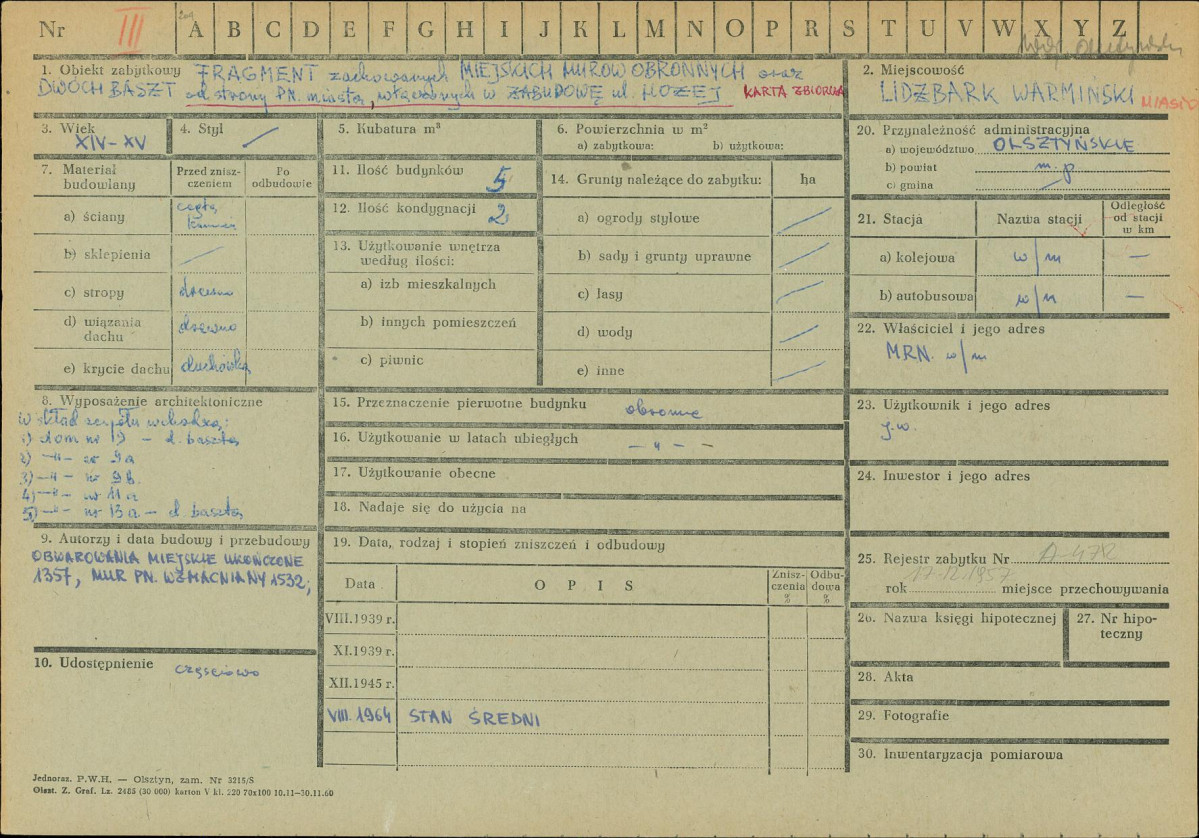 Nr III A B C D E F G H I J K L M N O P R S T U V W X Y Z
1. Obiekt zabytkowy FRAGMENT zachowanych MIEJSKICH MURÓW OBRONNYCH oraz
DWÓCH BASZT od strony PN. miasta, włączonych w ZABUDOWĘ ul. HOŻEJ KARTA ZBIORCZA
2. Miejscowość
LIDZBARK WARMIŃSKI MIASTO
3. Wiek
XIV-XV
4. Styl
5. Kubatura m³
6. Powierzchnia w m²
a) zabytkowa: b) użytkowa:
7. Materiał budowlany
Przed zniszczeniem
Po odbudowie
a) ściany cegła, kamień
b) sklepienia
c) stropy drewno
d) wiązania dachu drewno
e) krycie dachu dachówka
8. Wyposażenie architektoniczne
W skład zespołu wchodzą:
1) dom nr 19 – d. baszta
2) –"– nr 9a
3) –"– nr 9b
4) –"– nr 11a
5) –"– nr 13a – d. baszta
9. Autorzy i data budowy i przebudowy
OBWAROWANIA MIEJSKIE UKOŃCZONE
1357, MUR PN. WZMACNIANY 1532;
10. Udostępnienie częściowo
11. Ilość budynków 5
12. Ilość kondygnacji 2
13. Użytkowanie wnętrza
według ilości:
a) izb mieszkalnych
b) innych pomieszczeń
c) piwnic
14. Grunty należące do zabytku: ha
a) ogrody stylowe
b) sady i grunty uprawne
c) lasy
d) wody
e) inne
15. Przeznaczenie pierwotne budynku obronne
16. Użytkowanie w latach ubiegłych – " – –
17. Użytkowanie obecne
18. Nadaje się do użycia na
19. Data, rodzaj i stopień zniszczeń i odbudowy
Data O P I S Zniszczenia % Odbudowa %
VIII.1939 r.
XI.1939 r.
XII.1945 r.
VIII.1964 STAN ŚREDNI
20. Przynależność administracyjna
a) województwo OLSZTYŃSKIE
b) powiat m.p.
c) gmina
21. Stacja Nazwa stacji Odległość od stacji w km
a) kolejowa w/m –
b) autobusowa w/m –
22. Właściciel i jego adres
MRN. w/m
23. Użytkownik i jego adres
j.w.
24. Inwestor i jego adres
25. Rejestr zabytku Nr A-472
rok 17.12.1957 miejsce przechowywania
26. Nazwa księgi hipotecznej
27. Nr hipoteczny
28. Akta
29. Fotografie
30. Inwentaryzacja pomiarowa
Jednoraz. P.W.H. — Olsztyn, zam. Nr 3215/S
Olszt. Z. Graf. Lz. 2485 (30 000) karton V kl. 220 70x100 10.11—30.11.60